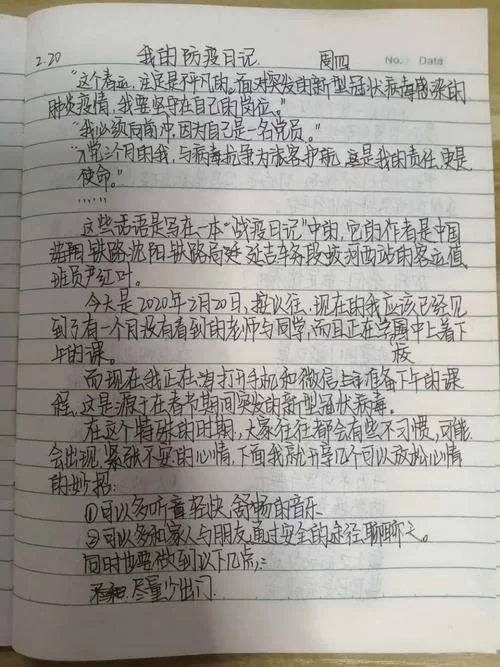 2.20 我的防疫日记 周四 No. Date
"这个春运,注定是不平凡的。面对突发的新型冠状病毒感染的
肺炎疫情,我要坚守在自己的岗位。"
"我必须向前冲,因为自己是一名党员。"
"入党三个月的我,与病毒抗争为旅客护航,这是我的责任,更是
使命。"
……
这些话语是写在一本"战疫日记"中的,它的作者是中国
铁路沈阳铁路局 延吉车务段 河西站的客运值
班员严红叶。
今天是2020年2月20日,按以往,现在的我应该已经见
到了有一个月没有看到的老师与同学,而且正在学校中上着下
午的课。
而现在我正在 打开手机和微信上 准备下午的课
程,这是源于在春节期间突发的新型冠状病毒。
在这个特殊的时期,大家往往都会有些不习惯,可能
会出现紧张不安的心情,下面我就 享几个可以放松心情
的妙招:
①可以多听章轻快、舒畅的音乐
②可以多和家人与朋友通过安全的途径聊聊天。
同时也要做到以下几点:
尽量少出门.